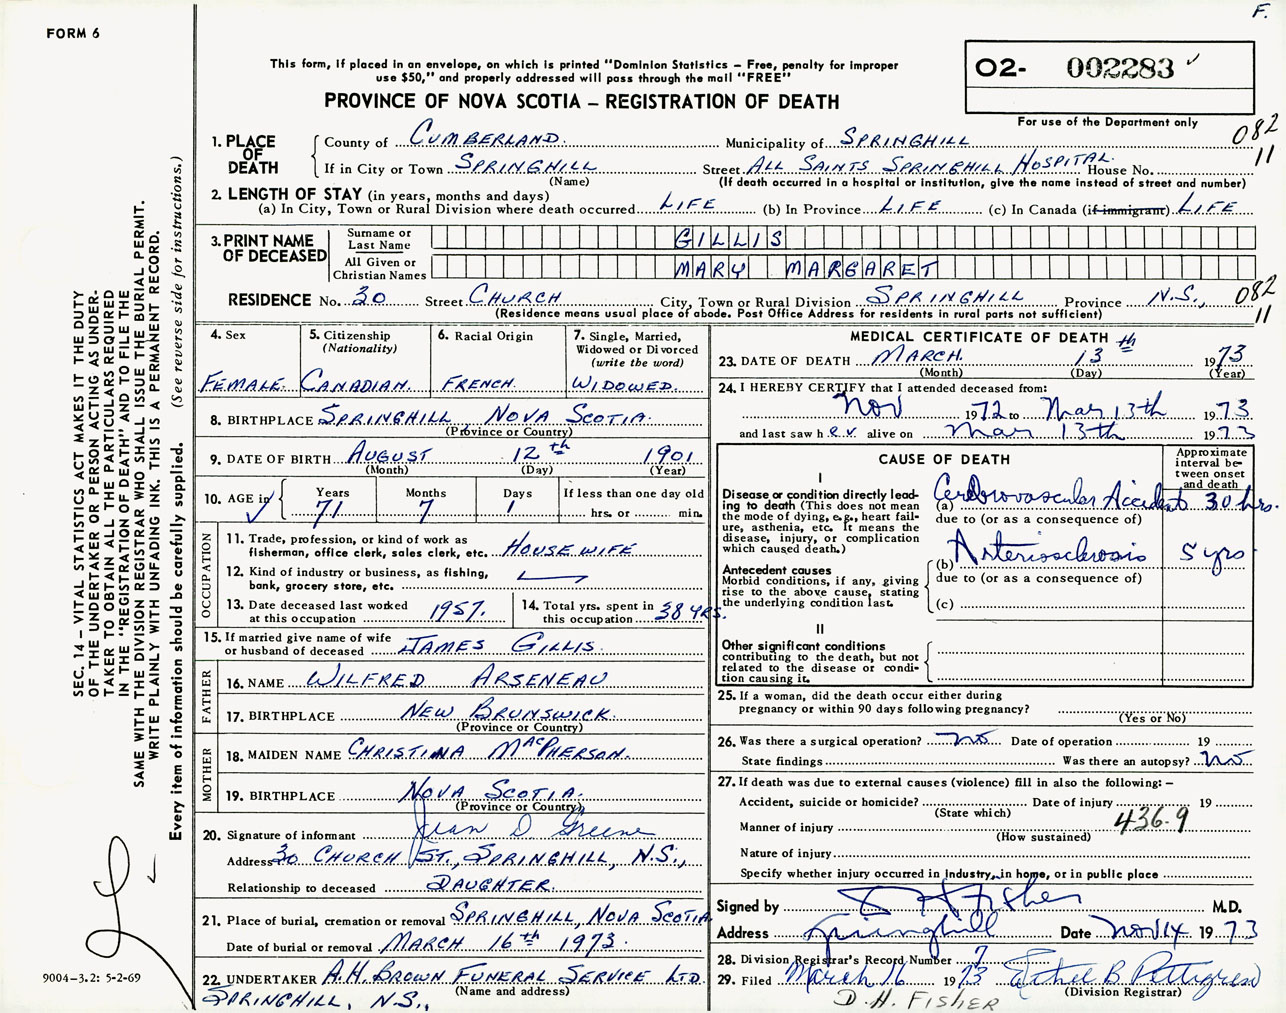 F.
FORM 6
This form, if placed in an envelope, on which is printed "Dominion Statistics – Free, penalty for improper
use $50," and properly addressed will pass through the mail "FREE"
O2- 002283 ✓
PROVINCE OF NOVA SCOTIA – REGISTRATION OF DEATH
For use of the Department only
1. PLACE OF DEATH
County of CUMBERLAND. Municipality of SPRINGHILL 082
If in City or Town SPRINGHILL Street ALL SAINTS SPRINGHILL HOSPITAL. House No. 11
(Name) (If death occurred in a hospital or institution, give the name instead of street and number)
2. LENGTH OF STAY (in years, months and days)
(a) In City, Town or Rural Division where death occurred LIFE (b) In Province LIFE (c) In Canada (if immigrant) LIFE
3. PRINT NAME OF DECEASED
Surname or Last Name GILLIS
All Given or Christian Names MARY MARGARET
RESIDENCE No. 30 Street CHURCH City, Town or Rural Division SPRINGHILL Province N.S., 082
(Residence means usual place of abode. Post Office Address for residents in rural parts not sufficient) 11
4. Sex
FEMALE.
5. Citizenship
(Nationality)
CANADIAN.
6. Racial Origin
FRENCH.
7. Single, Married,
Widowed or Divorced
(write the word)
WIDOWED.
8. BIRTHPLACE SPRINGHILL NOVA SCOTIA.
(Province or Country)
9. DATE OF BIRTH AUGUST 12th 1901
(Month) (Day) (Year)
10. AGE in ✓
Years Months Days If less than one day old
71 7 1 hrs. or min.
OCCUPATION
11. Trade, profession, or kind of work as
fisherman, office clerk, sales clerk, etc. HOUSEWIFE
12. Kind of industry or business, as fishing,
bank, grocery store, etc.
13. Date deceased last worked
at this occupation 1957.
14. Total yrs. spent in
this occupation 38 YRS.
15. If married give name of wife
or husband of deceased JAMES GILLIS.
FATHER
16. NAME WILFRED ARSENEAU
17. BIRTHPLACE NEW BRUNSWICK.
(Province or Country)
MOTHER
18. MAIDEN NAME CHRISTINA MacPHERSON.
19. BIRTHPLACE NOVA SCOTIA.
(Province or Country)
20. Signature of informant Jean D Greene
Address 30 CHURCH ST., SPRINGHILL, N.S.,
Relationship to deceased DAUGHTER.
21. Place of burial, cremation or removal SPRINGHILL, NOVA SCOTIA.
Date of burial or removal MARCH 16th 1973.
22. UNDERTAKER A.H. BROWN FUNERAL SERVICE LTD.
(Name and address)
SPRINGHILL, N.S.,
MEDICAL CERTIFICATE OF DEATH
23. DATE OF DEATH MARCH. 13th 1973
(Month) (Day) (Year)
24. I HEREBY CERTIFY that I attended deceased from:
Nov 1972 to Mar 13th 1973
and last saw her alive on Mar 13th 1973
CAUSE OF DEATH
Approximate
interval be-
tween onset
and death
I
Disease or condition directly lead-
ing to death (This does not mean
the mode of dying, e.g., heart fail-
ure, asthenia, etc. It means the
disease, injury, or complication
which caused death.)
(a) Cerebrovascular Accident 30 hrs.
due to (or as a consequence of)
Antecedent causes
Morbid conditions, if any, giving
rise to the above cause, stating
the underlying condition last.
(b) Arteriosclerosis 5 yrs
due to (or as a consequence of)
(c)
II
Other significant conditions
contributing to the death, but not
related to the disease or condi-
tion causing it.
25. If a woman, did the death occur either during
pregnancy or within 90 days following pregnancy?
(Yes or No)
26. Was there a surgical operation? no Date of operation 19
State findings Was there an autopsy? no
27. If death was due to external causes (violence) fill in also the following: –
Accident, suicide or homicide? Date of injury 19
(State which)
Manner of injury 436.9
(How sustained)
Nature of injury
Specify whether injury occurred in industry, in home, or in public place
Signed by D H Fisher M.D.
Address Springhill Date Nov 14 1973
28. Division Registrar's Record Number 7
29. Filed March 16 1973 Ethel B Pettigrew
(Division Registrar)
D. H. FISHER
SEC. 14 – VITAL STATISTICS ACT MAKES IT THE DUTY
OF THE UNDERTAKER OR PERSON ACTING AS UNDER-
TAKER TO OBTAIN ALL THE PARTICULARS REQUIRED
IN THE "REGISTRATION OF DEATH" AND TO FILE THE
SAME WITH THE DIVISION REGISTRAR WHO SHALL ISSUE THE BURIAL PERMIT.
WRITE PLAINLY WITH UNFADING INK. THIS IS A PERMANENT RECORD.
Every item of information should be carefully supplied. (See reverse side for instructions.)
9004–3.2: 5-2-69